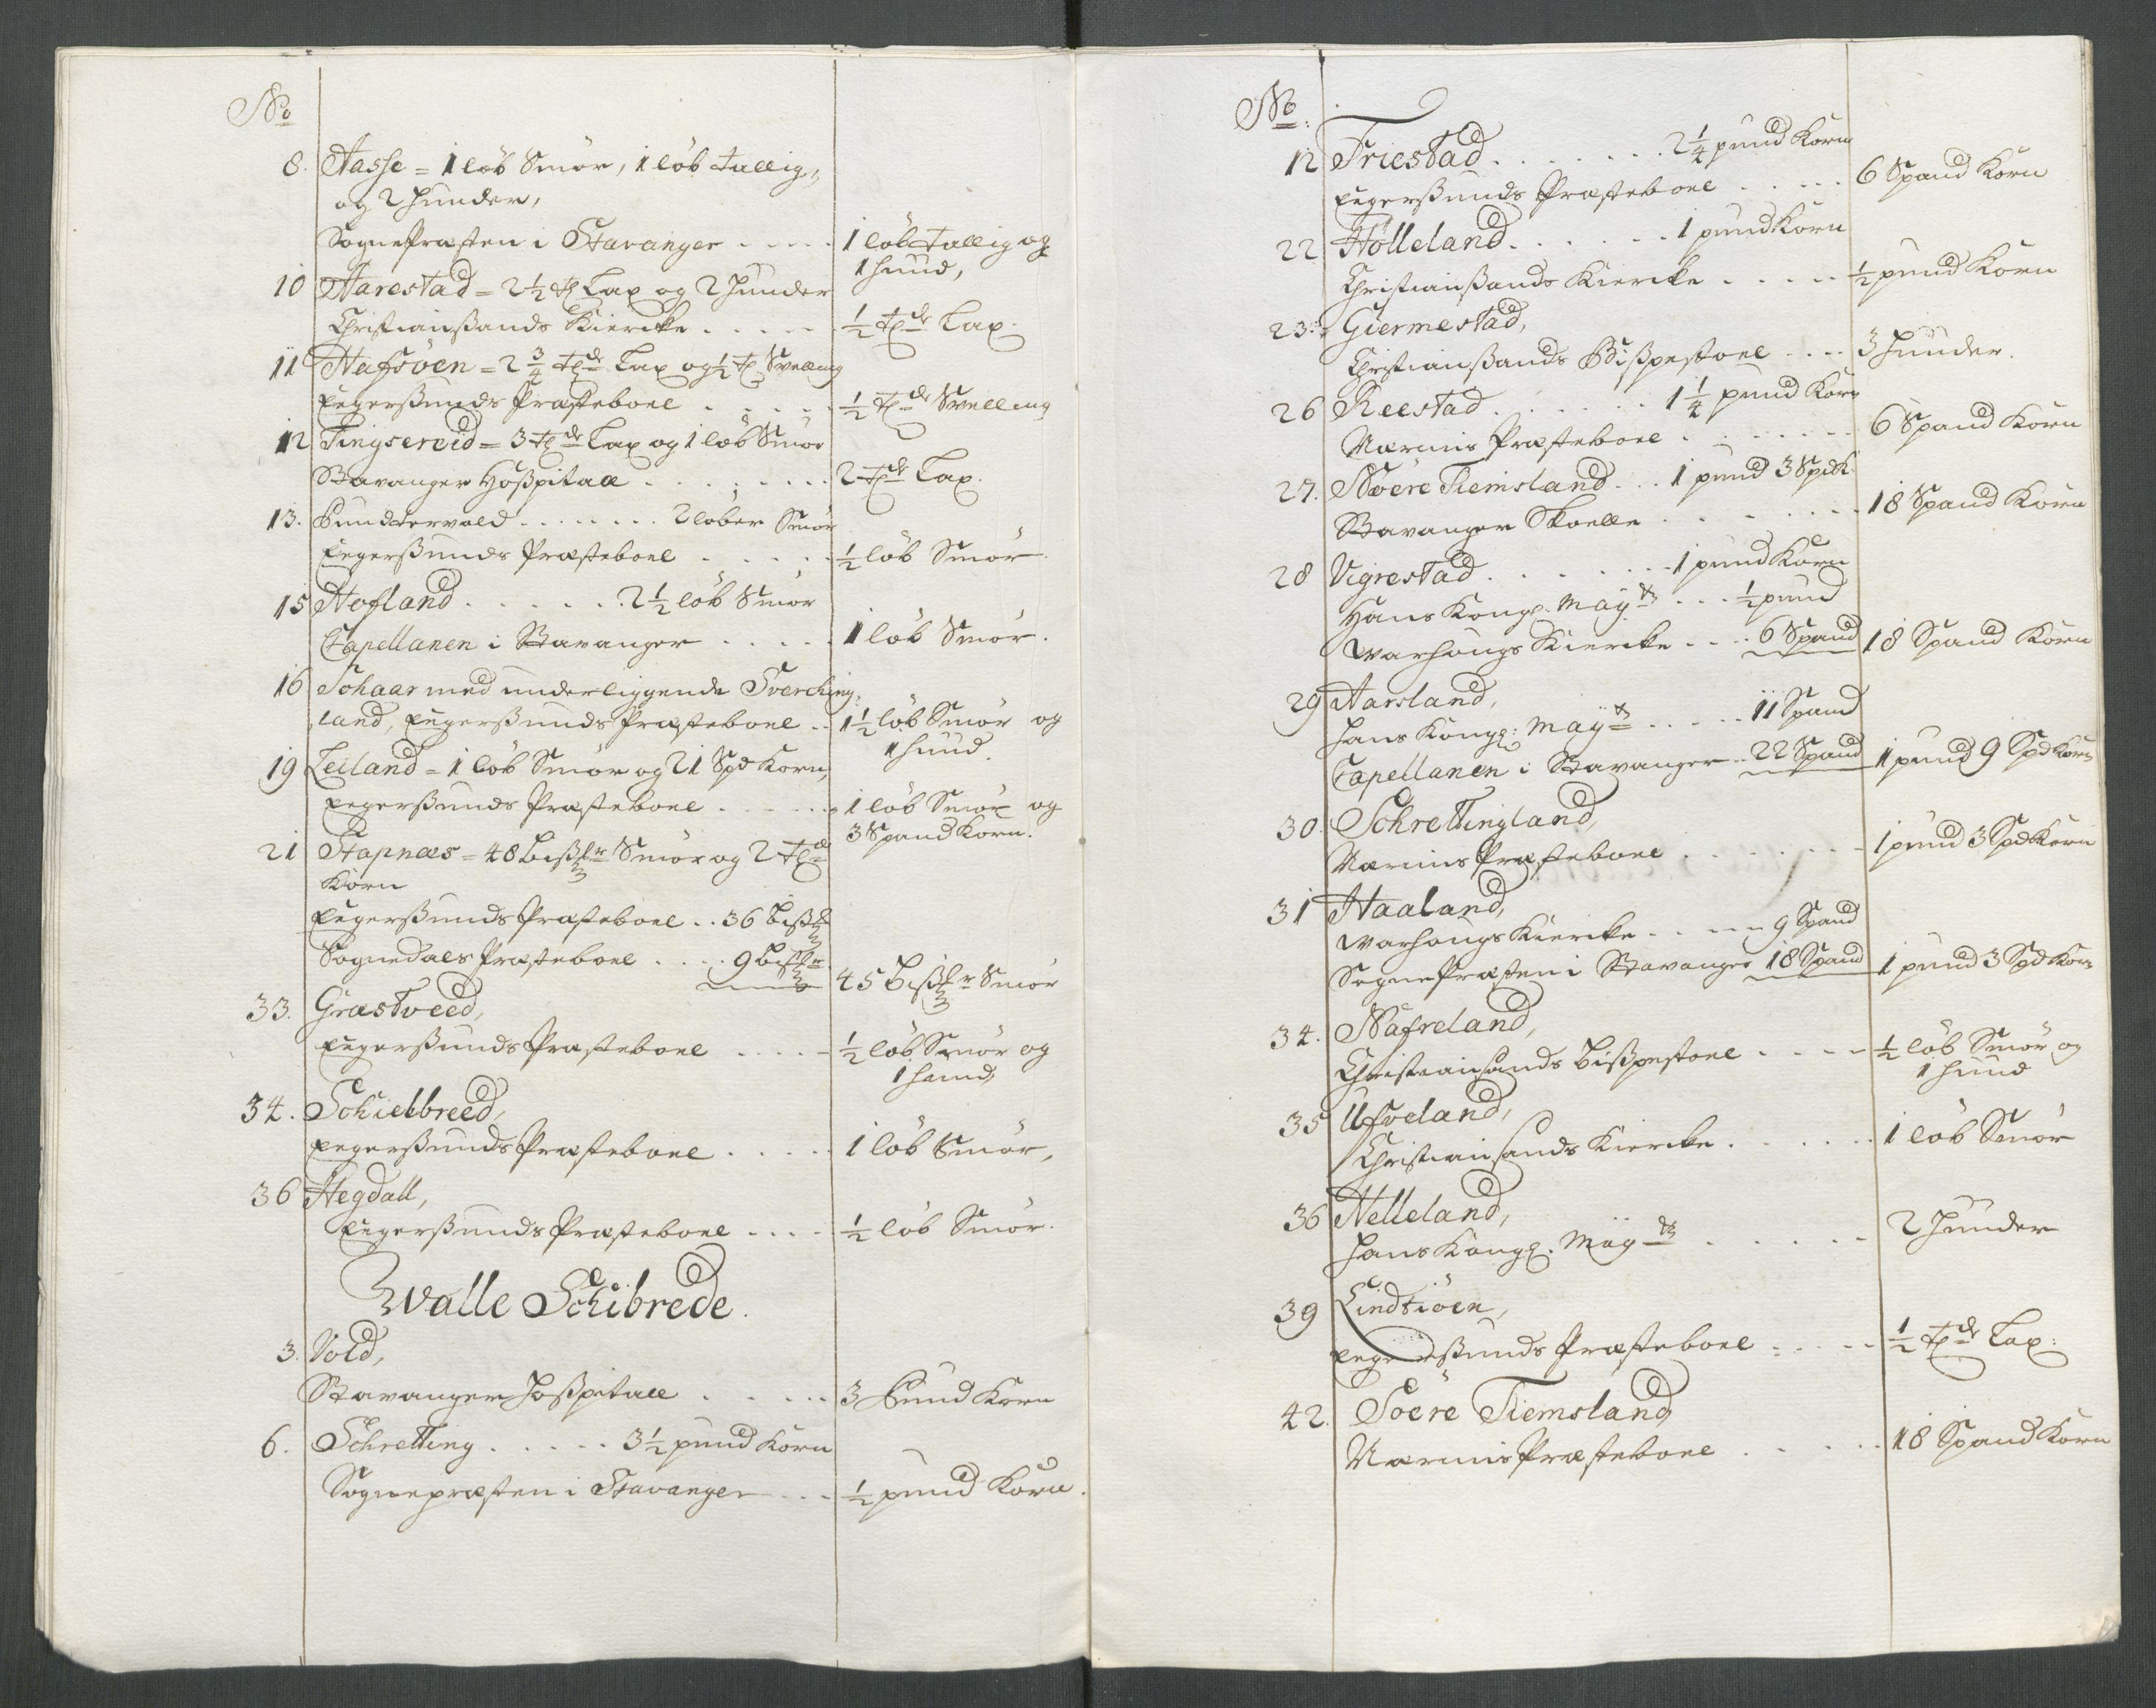 No
8. Aasse = 1 löb Smör, 1 löb tallig,
og 2 Huuder,
SognePræsten i Stavanger ..... 1 löb tallig og
1 huud,
10 Aarestad = 2 1/2 tl Lax og 2 Huuder
Christianßands Kiercke ..... 1/2 tlde Lax.
11 Hafsöen = 2 3/4 tlde Lax og 1/2 tl Svelling
Eegersßunds Præsteboel ..... 1/2 tlde Svelling
12 Tingsereid = 3 tlde Lax og 1 löb Smör
Stavanger Hoßpitall ........ 2 tlde Lax.
13. Pundtervold ........ 2 löber Smör
Eegersßunds Præsteboel ..... 1/2 löb Smör.
15 Hofland ...... 2 1/2 löb Smör
Capellanen i Stavanger ..... 1 löb Smör.
16 Schaar med underliggende Sverching,
land, Eegersßunds Præsteboel .. 1 1/2 löb Smör og
1 huud.
19 Leiland = 1 löb Smör og 21 Spd Korn,
Eegersßunds Præsteboel ...... 1 löb Smör og
3 Spand Korn.
21 Stapnæs = 48 bißlr Smör og 2 tlde
Korn
Eegersßunds Præsteboel .. 36 bißlr
Sognedals Præsteboel .... 9 bißlr 45 Bißlr Smör
33. Græstveed,
Eegersßunds Præsteboel ..... 1/2 löb Smör og
1 huud,
34. Schielbreed,
Eegersßunds Præsteboel ..... 1 löb Smör,
36 Hegdall,
Eegersßunds Præsteboel .... 1/2 löb Smör.
Walle Schibrede.
3. Vold,
Stavanger Hoßpitall ..... 3 Pund Korn
6. Schretting ..... 3 1/2 pund Korn
Sognepræsten i Stavanger ... 1/2 pund Korn.
No.
12 Friestad ....... 2 1/4 pund Korn
Eegersßunds Præsteboel ..... 6 Spand Korn
22 Hölleland ...... 1 pund Korn
Christianßands Kiercke ..... 1/2 pund Korn
23. Giermestad,
Christianßands Bißpestoel .... 3 Huuder.
26 Reestad ...... 1 1/4 pund Korn
Nærims Præsteboel ....... 6 Spand Korn
27. Nöere Tiemsland ... 1 pund 3 Spd K.
Stavanger Skoelle ....... 18 Spand Korn
28 Vigrestad ...... 1 pund Korn
Hans Kongl. Maytz ... 1/2 pund
Warhougs Kiercke .... 6 Spand 18 Spand Korn
29 Aarsland,
Hans Kongl: Maytz ..... 11 Spand
Capellanen i Stavanger .. 22 Spand 1 pund 9 Spd Korn
30. Schrettingland,
Nærims Præsteboel ....... 1 pund 3 Spd Korn
31 Haaland,
Warhougs Kiercke ..... 9 Spand
SognePræsten i Stavanger 18 Spand 1 pund 3 Spd Korn
34. Nafreland,
Christiansands bißpestoel .... 1/2 löb Smör og
1 huud
35 Ufsveland,
Christiansands Kiercke ...... 1 löb Smör
36 Helleland,
Hans Kongl. Maytz ...... 2 Huuder
39 Lindtiöen,
Eegersßunds Præsteboel ..... 1/2 tlde Lax:
42. Söere Tiemsland,
Nærims Præsteboel ..... 18 Spand Korn